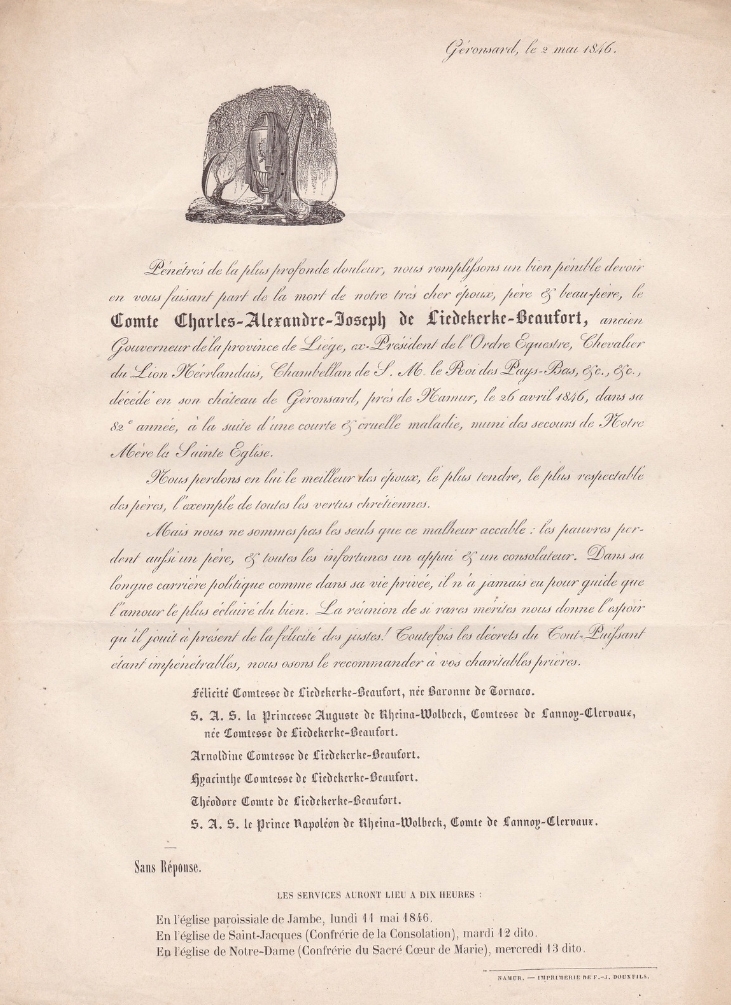 Géronsard, le 2 mai 1846.
Pénétrés de la plus profonde douleur, nous remplissons un bien pénible devoir
en vous faisant part de la mort de notre très cher époux, père & beau-père, le
Comte Charles-Alexandre-Joseph de Liedekerke-Beaufort, ancien
Gouverneur de la province de Liége, ex-Président de l'Ordre Equestre, Chevalier
du Lion Néerlandais, Chambellan de S. M. le Roi des Pays-Bas, &c., &c.,
décédé en son château de Géronsard, près de Namur, le 26 avril 1846, dans sa
82e année, à la suite d'une courte & cruelle maladie, muni des secours de Notre
Mère la Sainte Eglise.
Nous perdons en lui le meilleur des époux, le plus tendre, le plus respectable
des pères, l'exemple de toutes les vertus chrétiennes.
Mais nous ne sommes pas les seuls que ce malheur accable : les pauvres per-
dent aussi un père, & toutes les infortunes un appui & un consolateur. Dans sa
longue carrière politique comme dans sa vie privée, il n'a jamais eu pour guide que
l'amour le plus éclairé du bien. La réunion de si rares mérites nous donne l'espoir
qu'il jouit à présent de la félicité des justes! Toutefois les décrets du Tout-Puissant
étant impénétrables, nous osons le recommander à vos charitables prières.
Félicité Comtesse de Liedekerke-Beaufort, née Baronne de Tornaco.
S. A. S. la Princesse Auguste de Rheina-Wolbeck, Comtesse de Lannoy-Clervaux,
née Comtesse de Liedekerke-Beaufort.
Arnoldine Comtesse de Liedekerke-Beaufort.
Hyacinthe Comtesse de Liedekerke-Beaufort.
Théodore Comte de Liedekerke-Beaufort.
S. A. S. le Prince Napoléon de Rheina-Wolbeck, Comte de Lannoy-Clervaux.
Sans Réponse.
LES SERVICES AURONT LIEU A DIX HEURES :
En l'église paroissiale de Jambe, lundi 11 mai 1846.
En l'église de Saint-Jacques (Confrérie de la Consolation), mardi 12 dito.
En l'église de Notre-Dame (Confrérie du Sacré Cœur de Marie), mercredi 13 dito.
NAMUR. — IMPRIMERIE DE F.-J. DOUXFILS.